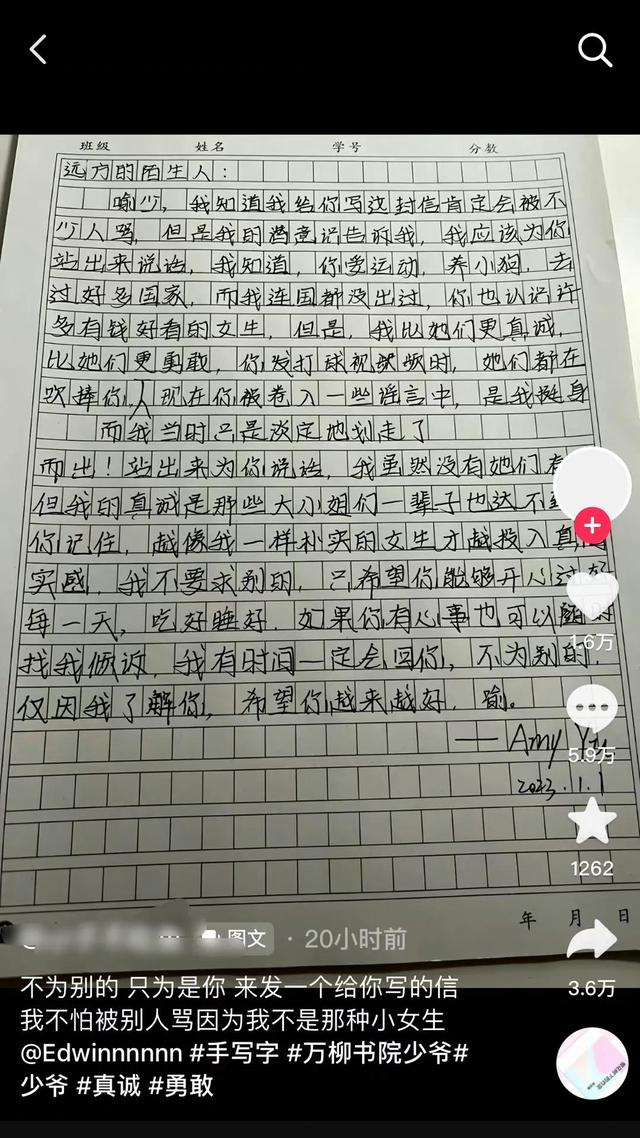 班级 姓名 学号 分数
远方的陌生人：
喻少，我知道我给你写这封信肯定会被不
少人骂，但是我的潜意识告诉我，我应该为你
站出来说话，我知道，你爱运动，养小狗，去
过好多国家，而我连国都没出过，你也认识许
多有钱好看的女生，但是，我比她们更真诚，
比她们更勇敢，你发打球视频时，她们都在
吹捧你，现在你被卷入一些谣言中，是我挺身
而我当时只是淡定地划走了
而出！站出来为你说话，我虽然没有她们有
但我的真诚是那些大小姐们一辈子也达不到
你记住，越像我一样朴实的女生才越投入真
实感，我不要求别的，只希望你能够开心过好
每一天，吃好睡好，如果你有心事也可以随时
找我倾诉，我有时间一定会回你，不为别的，
仅因我了解你，希望你越来越好，喻。
——Amy
2023.1.1
年 月 日
1.6万
5.9万
1262
3.6万
图文 · 20小时前
不为别的 只为是你 来发一个给你写的信
我不怕被别人骂因为我不是那种小女生
@Edwinnnnnn #手写字 #万柳书院少爷#
少爷 #真诚 #勇敢